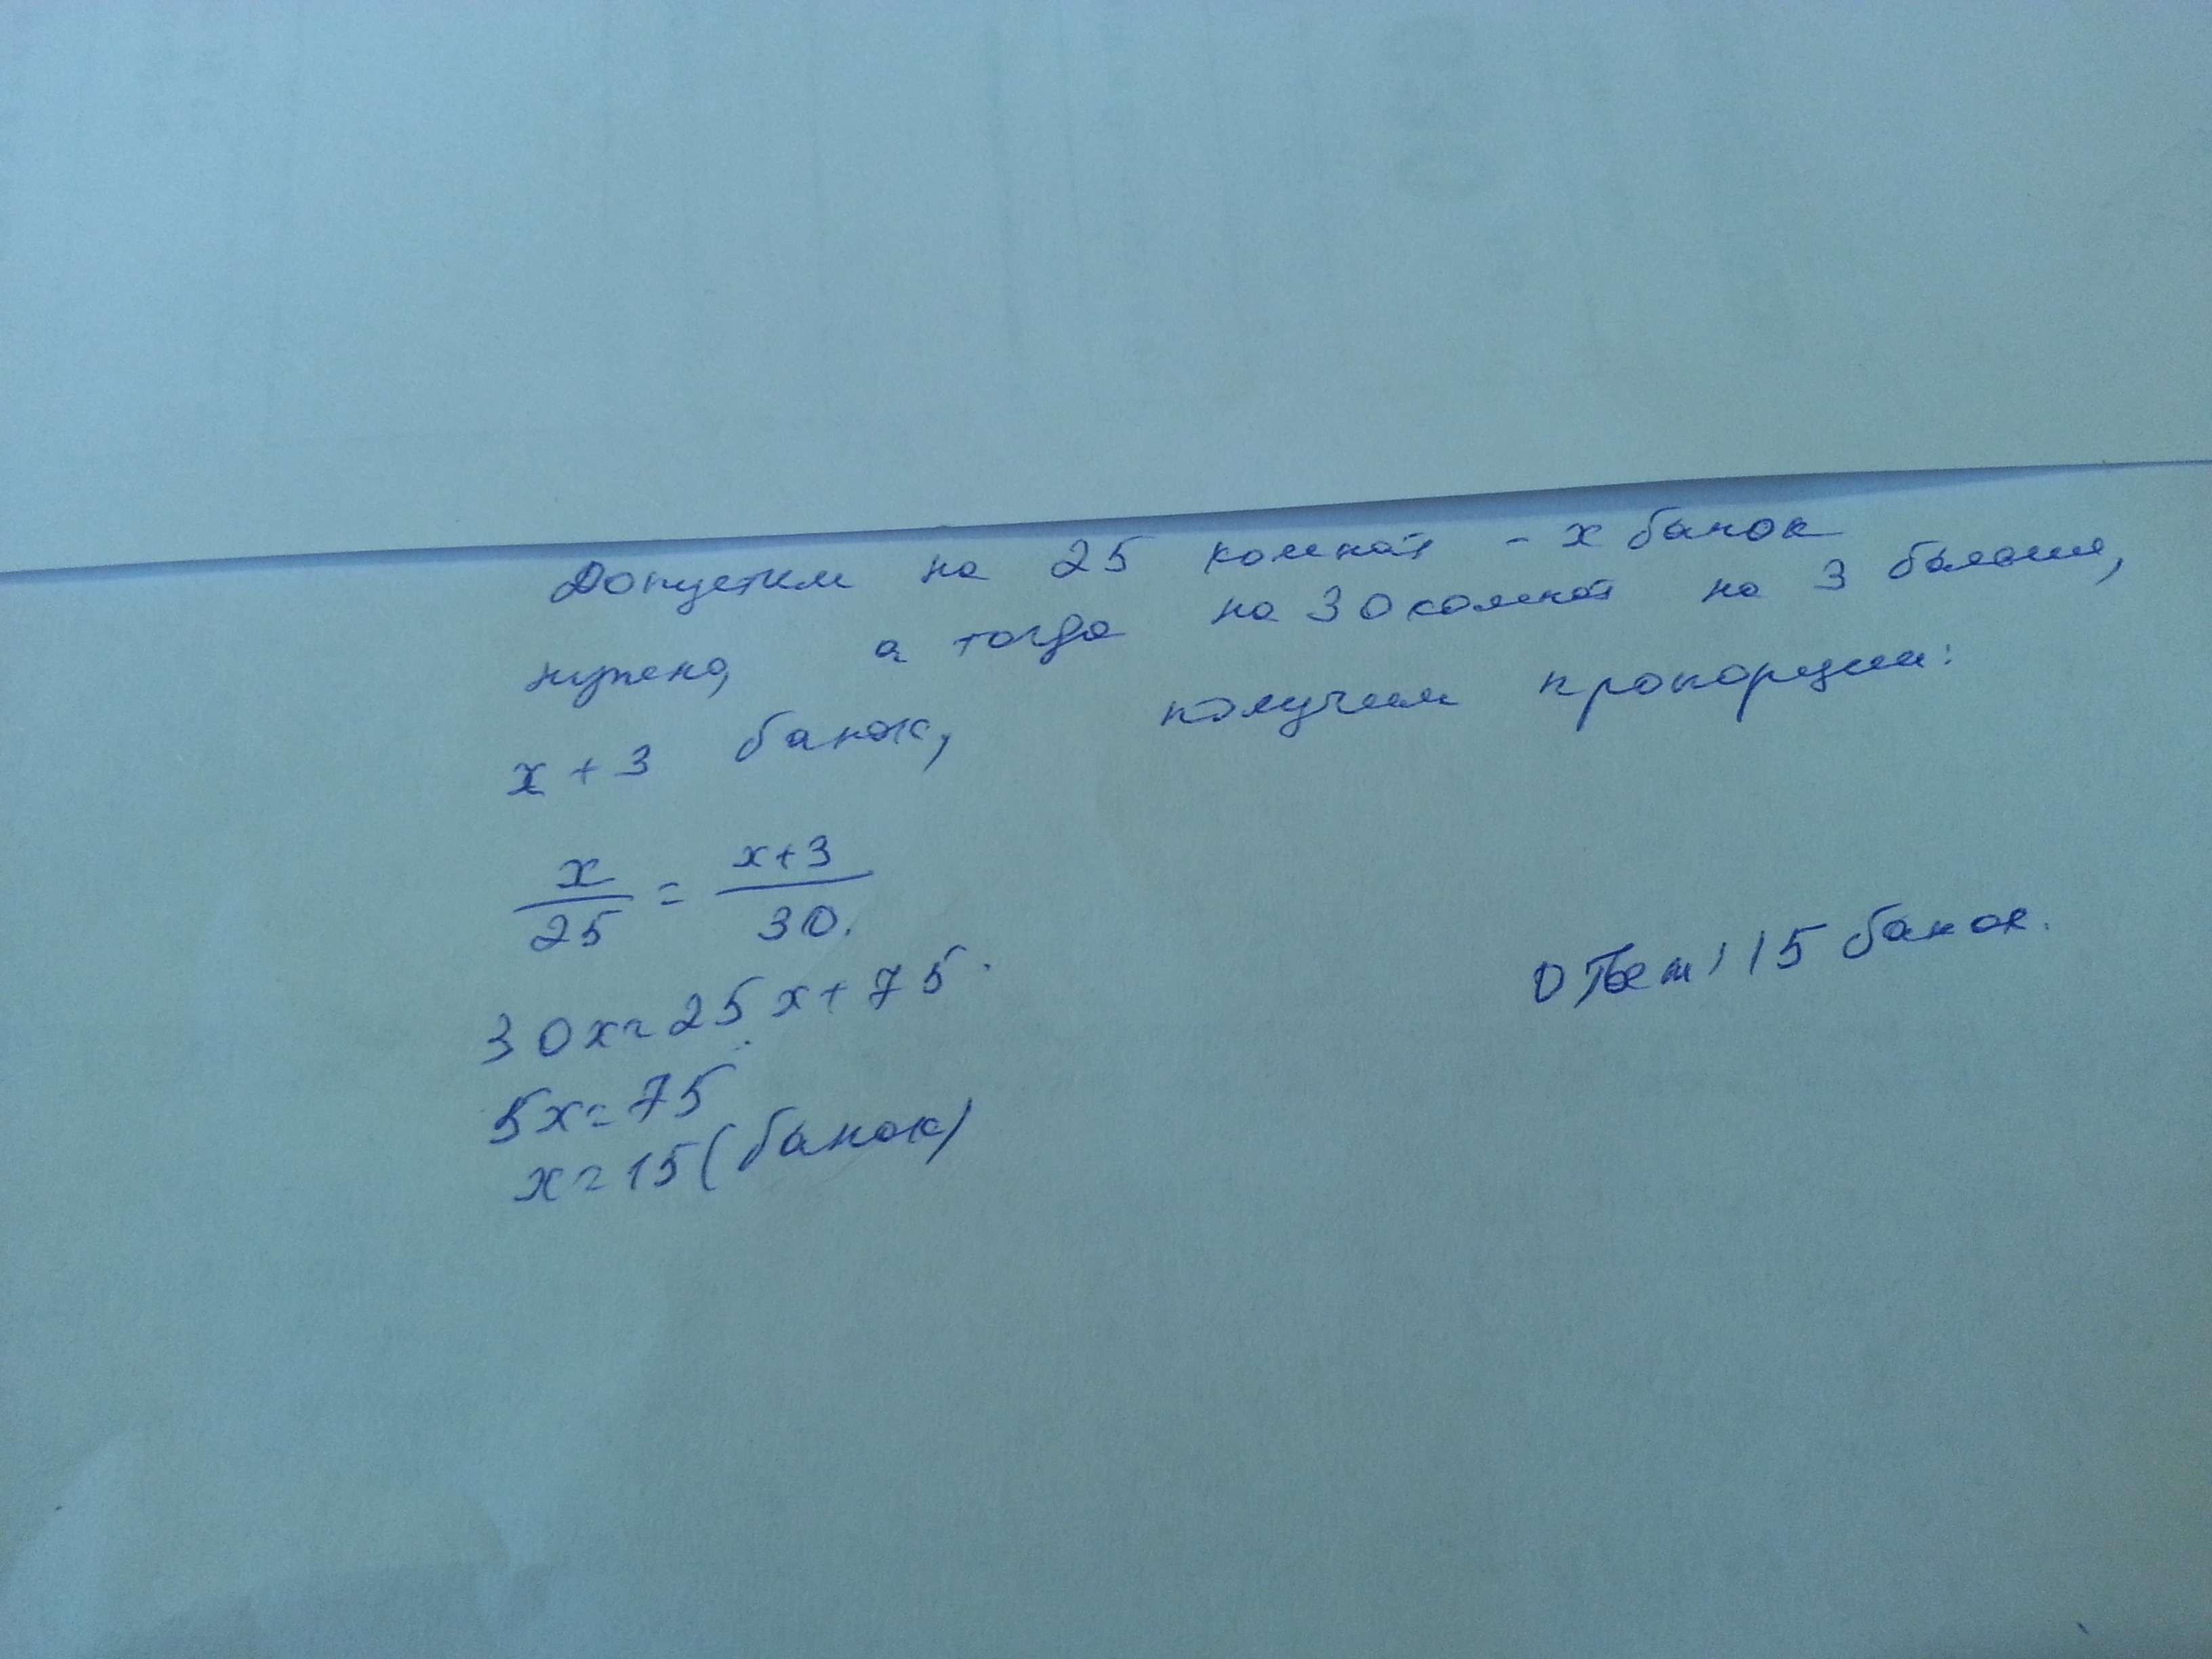 Допустим на 25 комнат - x банок
нужно, а тогда на 30 комнат на 3 больше,
x + 3 банок, получим пропорции:
x/25 = x+3/30.
30x = 25x + 75.
5x = 75
x = 15 (банок)
Ответ: 15 банок.